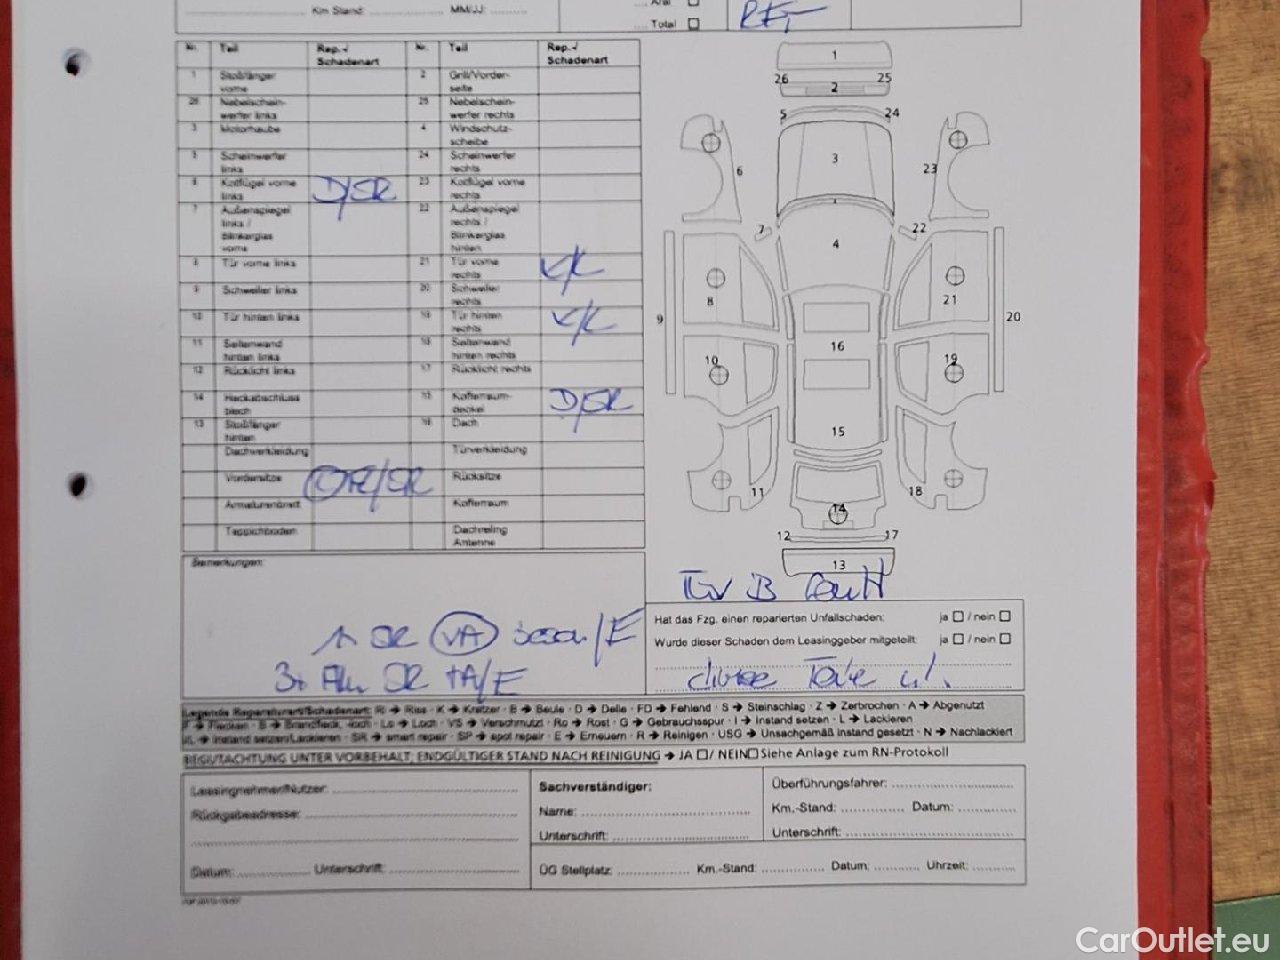 Km Stand: MM/JJ:
Total
Nr. Teil Rep.-/ Schadenart Nr. Teil Rep.-/ Schadenart
1 Stoßfänger vorne 2 Grill/Vorderseite
26 Nebelscheinwerfer links 25 Nebelscheinwerfer rechts
3 Motorhaube 4 Windschutzscheibe
5 Scheinwerfer links 24 Scheinwerfer rechts
6 Kotflügel vorne links D/SR 23 Kotflügel vorne rechts
7 Außenspiegel links / Blinkerglas vorne 22 Außenspiegel rechts / Blinkerglas hinten
8 Tür vorne links 21 Tür vorne rechts K/L
9 Schweller links 20 Schweller rechts
10 Tür hinten links 19 Tür hinten rechts K/L
11 Seitenwand hinten links 18 Seitenwand hinten rechts
12 Rücklicht links 17 Rücklicht rechts
14 Heckabschlussblech 15 Kofferraumdeckel D/SR
13 Stoßfänger hinten 16 Dach
Dachverkleidung Türverkleidung
Vordersitze Rücksitze
Armaturenbrett Kofferraum
Teppichboden Dachreling Antenne
1
26 25
2
5 24
3
6 23
7 22
4
8 21
9 20
16
10 19
15
11 18
14
12 17
13
Bemerkungen:
VA
Hat das Fzg. einen reparierten Unfallschaden: ja / nein
Wurde dieser Schaden dem Leasinggeber mitgeteilt: ja / nein
Legende Reparaturart/Schadenart: Ri → Riss · K → Kratzer · B → Beule · D → Delle · FD → Fehlend · S → Steinschlag · Z → Zerbrochen · A → Abgenutzt
F → Flecken · B → Brandfleck, -loch · Lo → Loch · VS → Verschmutzt · Ro → Rost · G → Gebrauchsspur · I → Instand setzen · L → Lackieren
IL → Instand setzen/Lackieren · SR → smart repair · SP → spot repair · E → Erneuern · R → Reinigen · USG → Unsachgemäß instand gesetzt · N → Nachlackiert
BEGUTACHTUNG UNTER VORBEHALT, ENDGÜLTIGER STAND NACH REINIGUNG → JA / NEIN Siehe Anlage zum RN-Protokoll
Leasingnehmer/Nutzer:
Rückgabeadresse:
Datum: Unterschrift:
Sachverständiger:
Name:
Unterschrift:
Überführungsfahrer:
Km.-Stand: Datum:
Unterschrift:
ÜG Stellplatz: Km.-Stand: Datum: Uhrzeit:
CarOutlet.eu